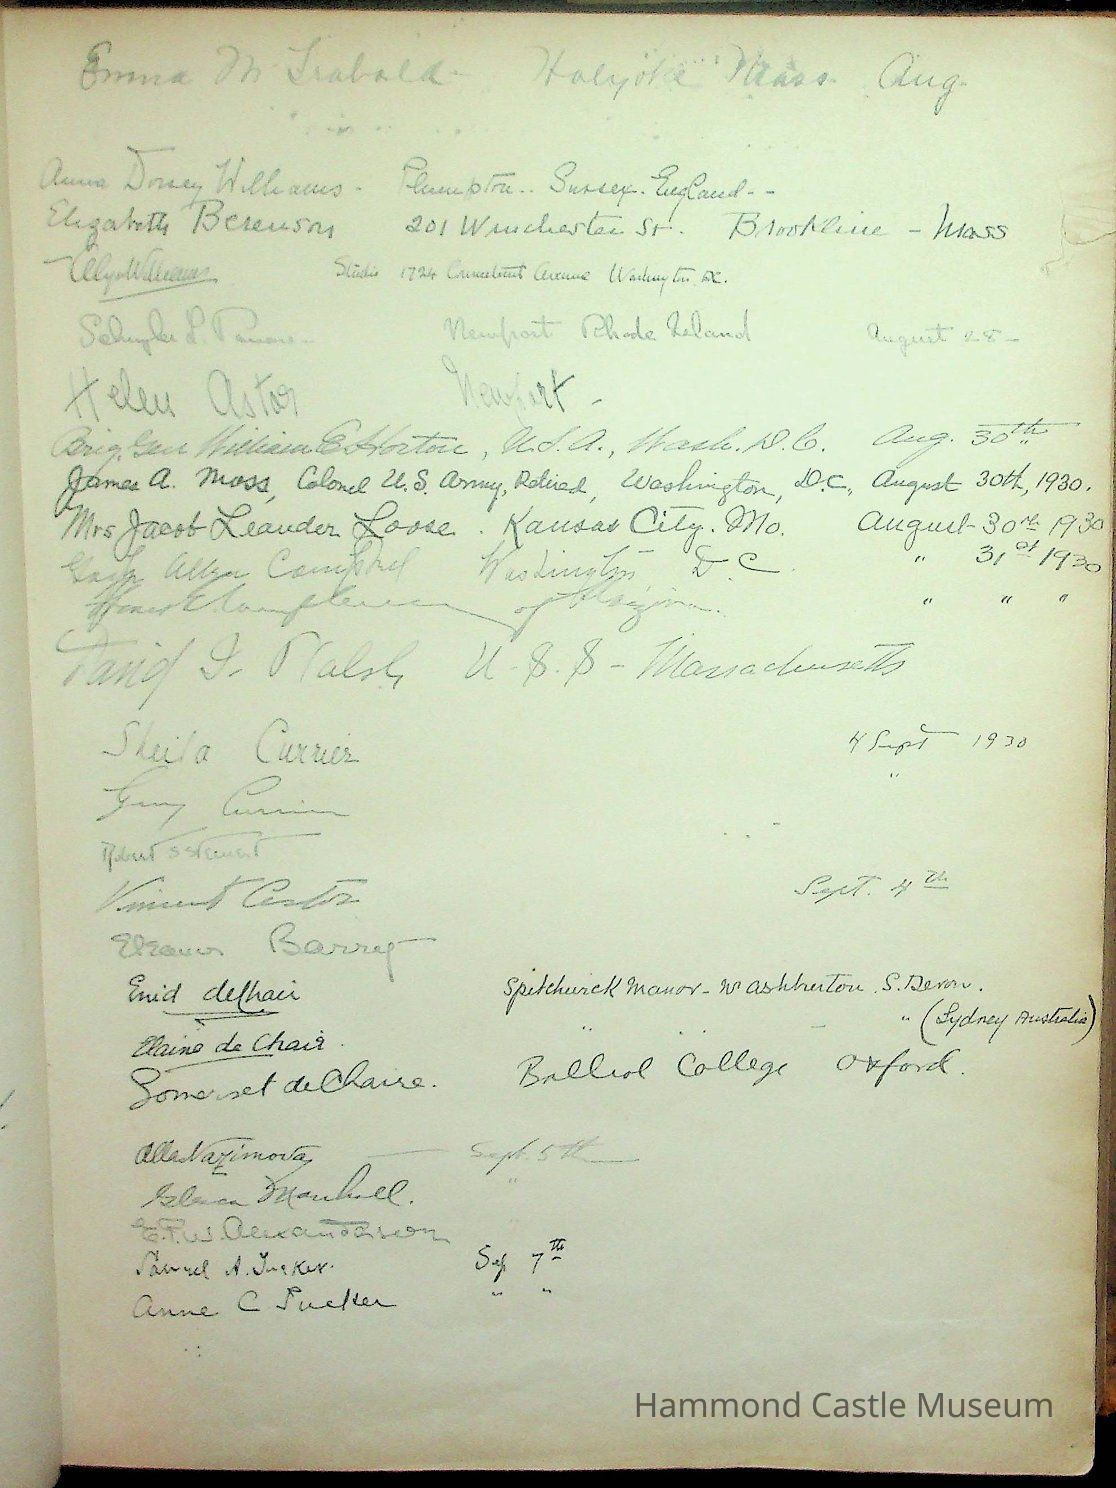 Emma M Holyoke Mass. Aug.
Anna Dorsey Williams - Plumpton.. Sussex. England - -
Elizabeth Berenson 201 Winchester St. Brookline - Mass
Williams Studio 1724 Connecticut Avenue Washington DC.
Schuyler L. Newport Rhode Island August 28 -
Helen Astor Newport -
Brig. Gen William E Horton, U.S.A., Wash. D.C. Aug. 30th
James A. Moss, Colonel U.S. Army, Retired, Washington, D.C., August 30th, 1930.
Mrs Jacob Leander Loose. Kansas City. Mo. August 30th 1930
Allen Campbell Washington D C " 31st 1930
of " " "
David I. Walsh U.S.S - Massachusetts
Sheila Currier 4 Sept 1930
Guy Currier "
Robert S Stewart
Vincent Astor Sept. 4th
Eleanor Barry
Enid deChair Spitchwick Manor - Nr Ashburton. S. Devon.
Elaine de Chair. " " " (Sydney Australia)
Somerset de Chaire. Balliol College Oxford.
Alla Nazimova Sept. 5th
Glesca Marshall. "
E.F.W. Alexanderson
Samuel A. Tucker. Sep 7th
Anne C Tucker " "
Hammond Castle Museum